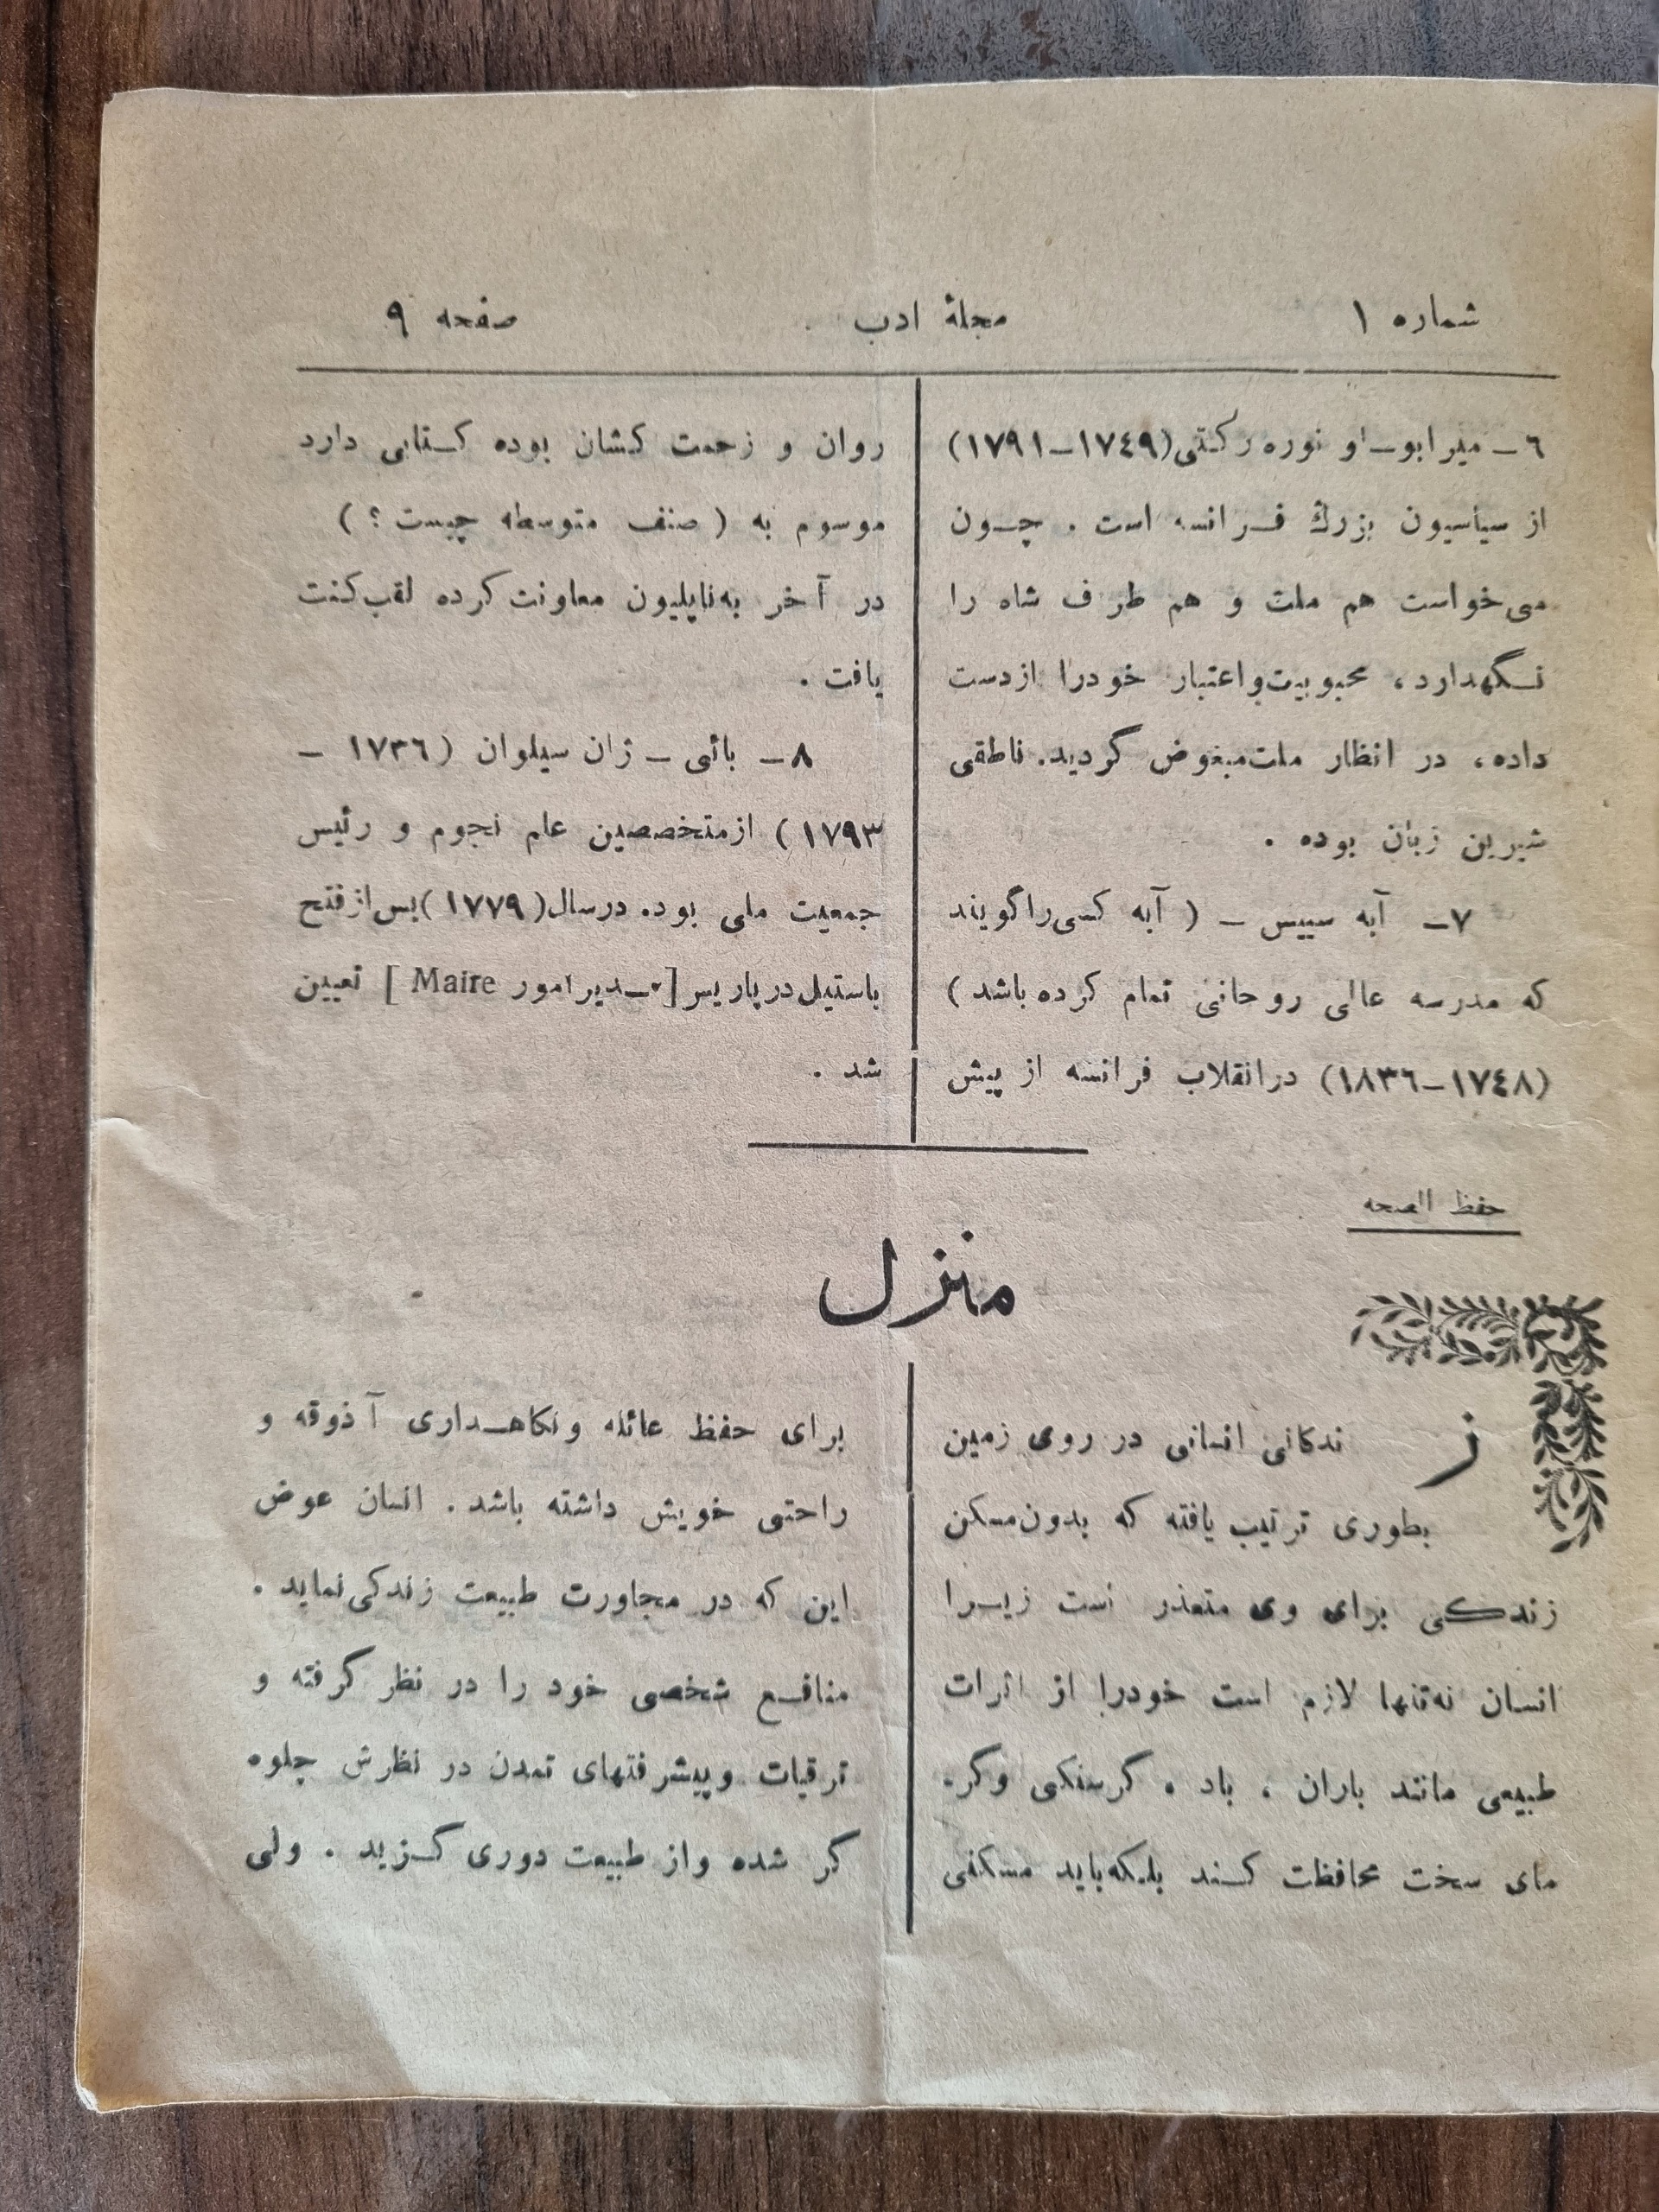 شماره ١
مجلهٔ ادب
صفحه ٩
٦ – میرابو – او نوره رکتی (١٧٤٩–١٧٩١)
از سیاسیون بزرك فرانسه است . چون
می‌خواست هم ملت و هم طرف شاه را
نگهدارد، محبوبیت واعتبار خودرا ازدست
داده، در انظار ملت مبغوض گردید. ناطقی
شیرین زبان بوده .
٧– آبه سییس – ( آبه کسی را گویند
که مدرسه عالی روحانی تمام کرده باشد )
(١٧٤٨–١٨٣٦) درانقلاب فرانسه از پیش
روان و زحمت کشان بوده کتابی دارد
موسوم به ( صنف متوسطه چیست ؟ )
در آخر به ناپلیون معاونت کرده لقب کنت
یافت .
٨– بائی – ژان سیلوان (١٧٣٦ –
١٧٩٣) از متخصصین علم نجوم و رئیس
جمعیت ملی بود. درسال (١٧٧٩) پس از فتح
باستیل در پاریس [مدیر امور Maire ] تعیین
شد .
حفظ الصحه
منزل
زندکانی انسانی در روی زمین
بطوری ترتیب یافته که بدون مسکن
زندکی برای وی متعذر است زیرا
انسان نه‌تنها لازم است خودرا از اثرات
طبیعی مانند باران ، باد ، گرسنکی وگر-
مای سخت محافظت کند بلکه باید مسکنی
برای حفظ عائله ونکاهداری آذوقه و
راحتی خویش داشته باشد . انسان عوض
این که در مجاورت طبیعت زندکی نماید .
منافع شخصی خود را در نظر گرفته و
ترقیات وپیشرفتهای تمدن در نظرش جلوه
گر شده واز طبیعت دوری گزید . ولی